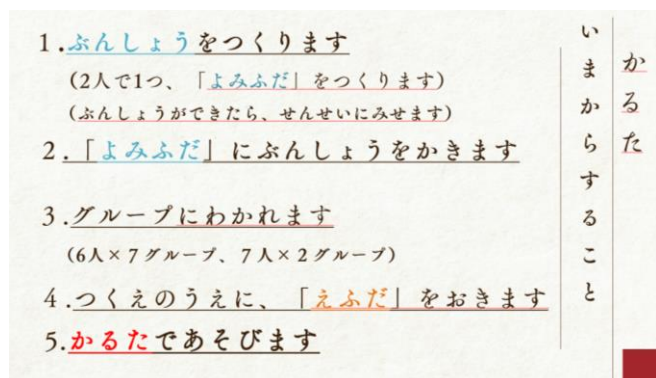 かるた
いまからすること
1.ぶんしょうをつくります
(2人で1つ、「よみふだ」をつくります)
(ぶんしょうができたら、せんせいにみせます)
2.「よみふだ」にぶんしょうをかきます
3.グループにわかれます
(6人×7グループ、7人×2グループ)
4.つくえのうえに、「えふだ」をおきます
5.かるたであそびます